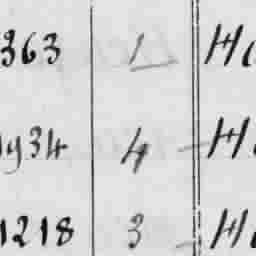 363 1 Ha
1934 4 - Ha
1218 3 - Ha